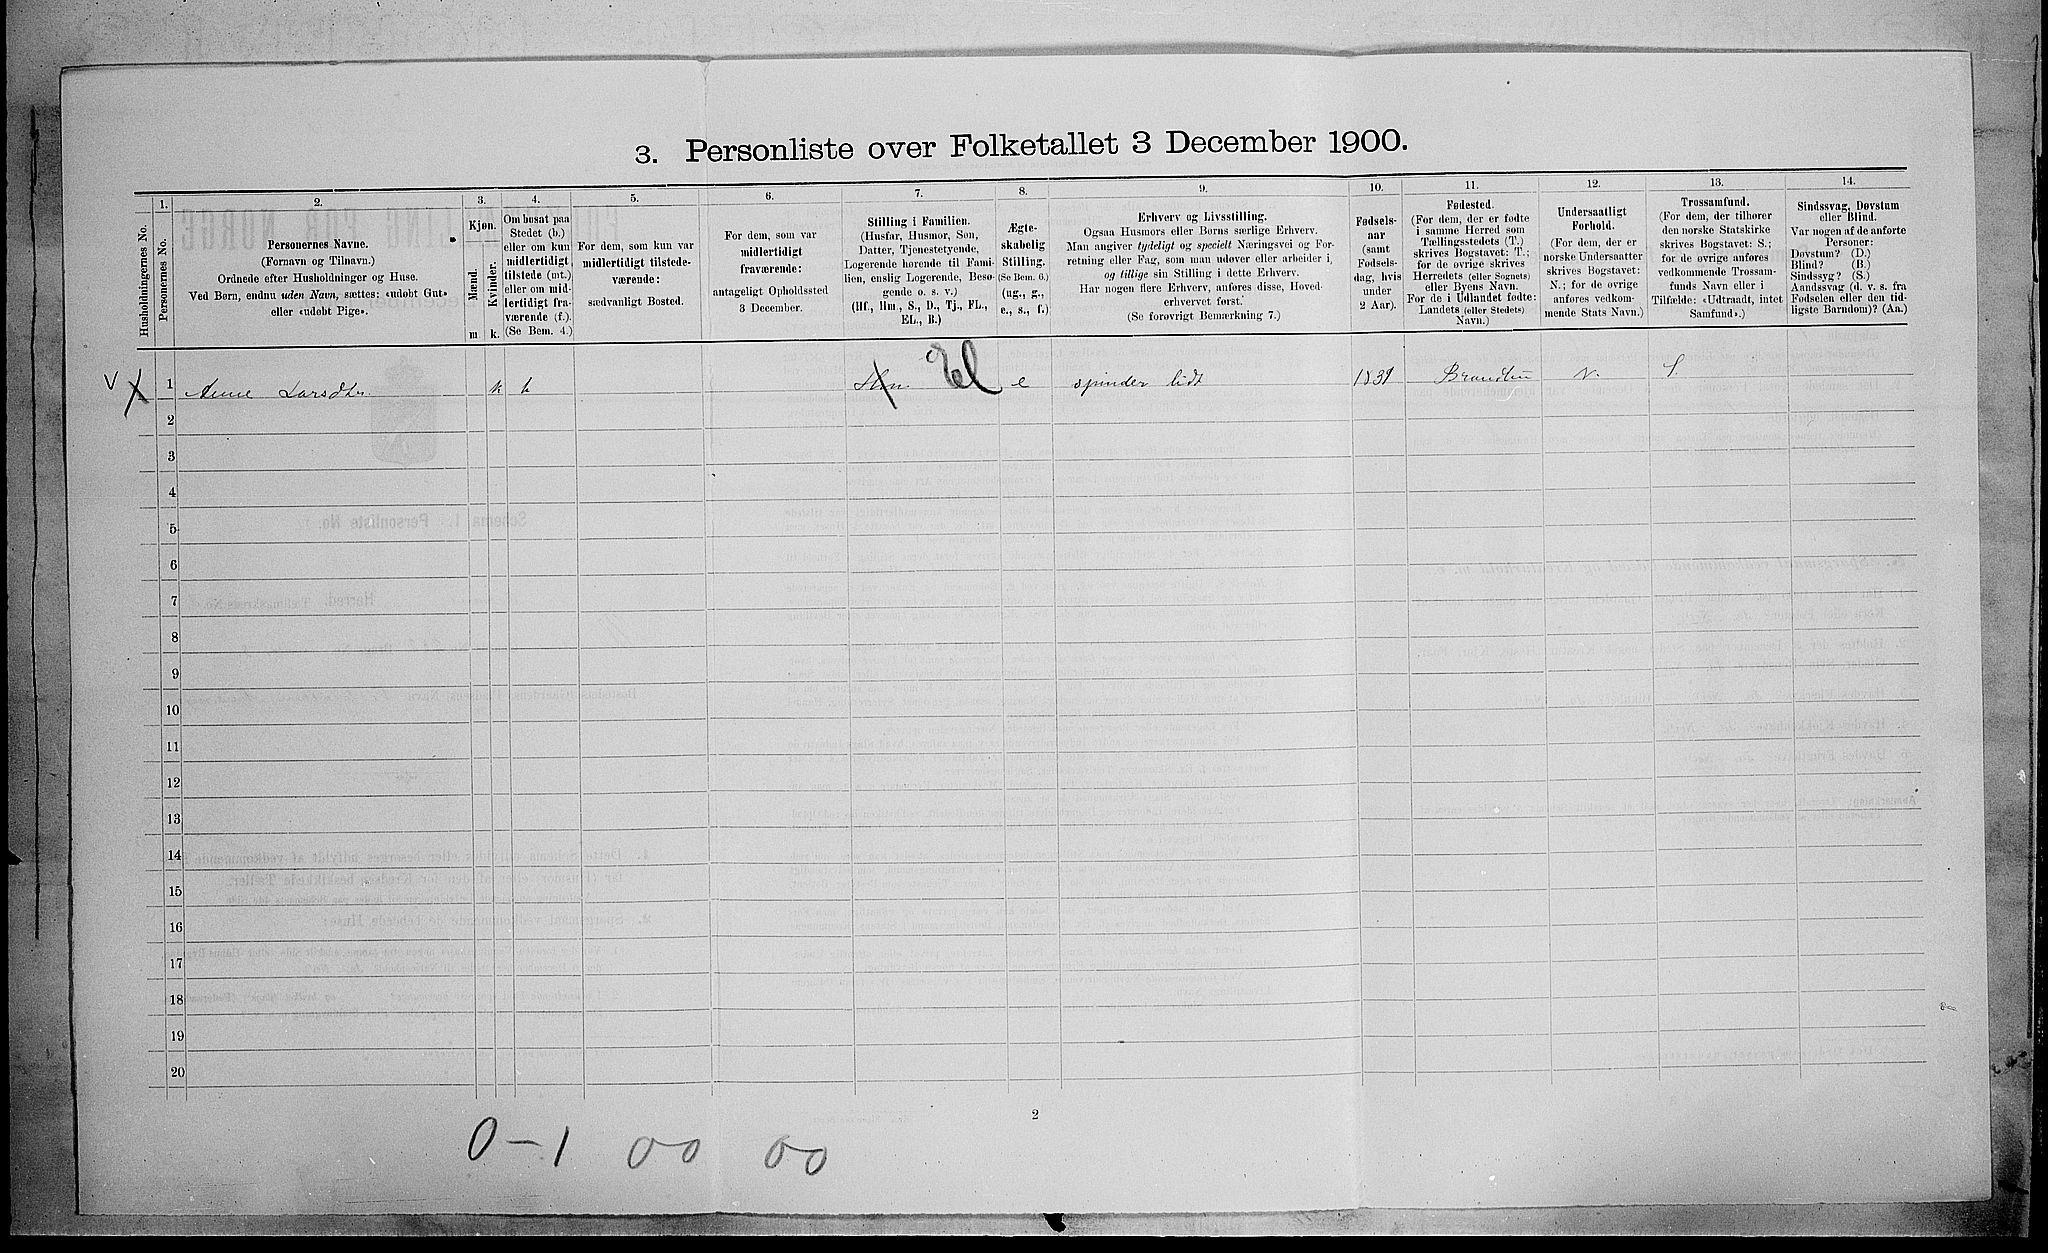 3. Personliste over Folketallet 3 December 1900.
1. 2. 3. 4. 5. 6. 7. 8. 9. 10. 11. 12. 13. 14.
Husholdningernes No.
Personernes No.
Personernes Navne.
(Fornavn og Tilnavn.)
Ordnede efter Husholdninger og Huse.
Ved Børn, endnu uden Navn, sættes: «udøbt Gut»
eller «udøbt Pige».
Kjøn.
Mænd.
Kvinder.
m k.
Om bosat paa
Stedet (b.)
eller om kun
midlertidigt
tilstede (mt.)
eller om mid-
lertidigt fra-
værende (f.).
(Se Bem. 4.)
For dem, som kun var
midlertidigt tilstede-
værende:
sædvanligt Bosted.
For dem, som var
midlertidigt
fraværende:
antageligt Opholdssted
3 December.
Stilling i Familien.
(Husfar, Husmor, Søn,
Datter, Tjenestetyende,
Logerende hørende til Fami-
lien, enslig Logerende, Besø-
gende o. s. v.)
(Hf., Hm., S., D., Tj., FL.,
EL., B.)
Ægte-
skabelig
Stilling.
(Se Bem. 6.)
(ug., g.,
e., s., f.)
Erhverv og Livsstilling.
Ogsaa Husmors eller Børns særlige Erhverv.
Man angiver tydeligt og specielt Næringsvei og For-
retning eller Fag, som man udøver eller arbeider i,
og tillige sin Stilling i dette Erhverv.
Har nogen flere Erhverv, anføres disse, Hoved-
erhvervet først.
(Se forøvrigt Bemærkning 7.)
Fødsels-
aar
(samt
Fødsels-
dag, hvis
under
2 Aar).
Fødested.
(For dem, der er fødte
i samme Herred som
Tællingsstedets (T.)
skrives Bogstavet: T.;
for de øvrige skrives
Herredets (eller Sognets)
eller Byens Navn.
For de i Udlandet fødte:
Landets (eller Stedets)
Navn.)
Undersaatligt
Forhold.
(For dem, der er
norske Undersaatter
skrives Bogstavet:
N.; for de øvrige
anføres vedkom-
mende Stats Navn.)
Trossamfund.
(For dem, der tilhører
den norske Statskirke
skrives Bogstavet: S.;
for de øvrige anføres
vedkommende Trossam-
funds Navn eller i
Tilfælde: «Udtraadt, intet
Samfund».)
Sindssvag, Døvstum
eller Blind.
Var nogen af de anførte
Personer:
Døvstum? (D.)
Blind? (B.)
Sindssyg? (S.)
Aandssvag (d. v. s. fra
Fødselen eller den tid-
ligste Barndom)? (Aa.)
1 Anne Larsdtr. k b Hm. El e spinder lidt 1831 Brandbu N. S.
2
3
4
5
6
7
8
9
10
11
12
13
14
15
16
17
18
19
20
2
0-1 00 00